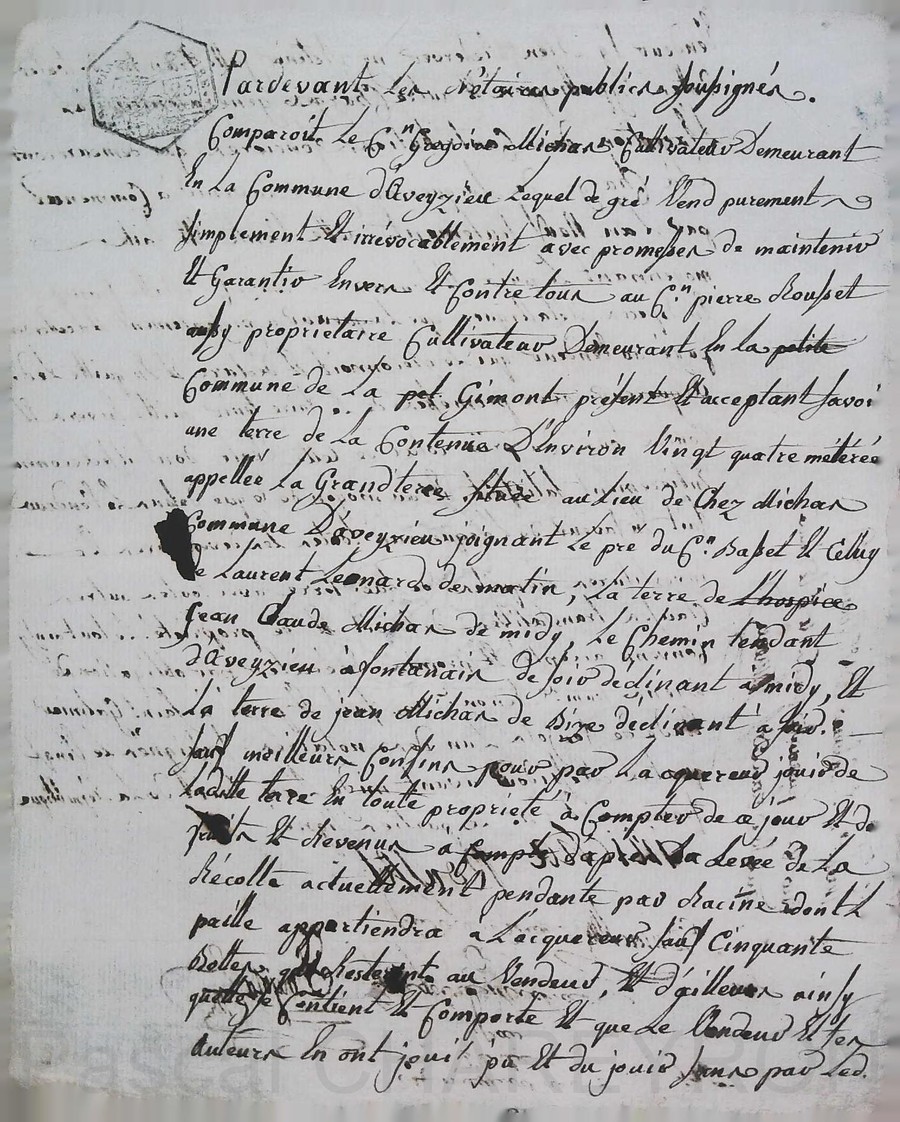 Pardevant Les Notaires publics Soussignés.
Comparoit Le C.n Gregoire Michas Cultivateur Demeurant
En La Commune d'aveyzieu Lequel de gré Vend purement
simplement Et irrévocablement avec promesses de maintenir
Et Garantir Envers Et Contre tous au C.n pierre Rousset
aussy propriétaire Cultivateur Demeurant En la petite
Commune de La pet Gimont présent Et acceptant Savoir
une terre de La Contenue D'Environ Vingt quatre métérée
appellée La Grandterre Située au Lieu de Chez Michas
Commune D'aveyzieu joignant Le pré du C.n Basset Et Celluy
de Laurent Leonard de matin, La terre de L'hospice
jean Claude Michas de midy, Le Chemin tendant
d'Aveyzieu à fontanais de soir declinant a midy, Et
La terre de jean Michas de Bize déclinant a soir.
Sauf meilleurs Confins pour par L'acquereur jouir de
Ladite terre En toute propriété à Compter de ce jour Et de
fruits Et Revenus a Compter d'après La Levée de La
Récolte actuellement pendante par Racine dont L
paille appartiendra a L'acquereur Sauf Cinquante
Bottes qui Resteront au Vendeur, Et d'ailleurs ainsy
quelle se Contient Et Comporte Et que Le Vendeur Et ses
auteurs En ont jouit pû Et du jouir Sans par Led.